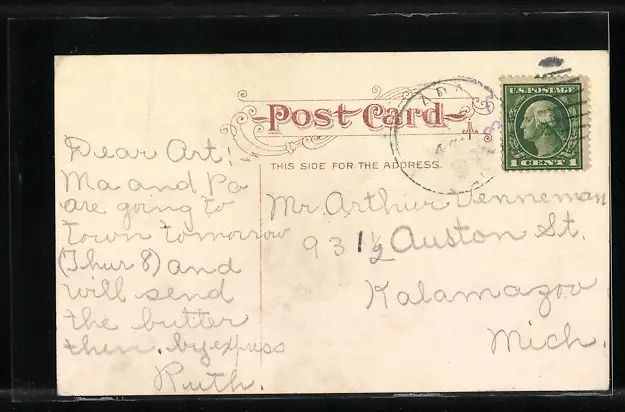 Post Card
THIS SIDE FOR THE ADDRESS.
U.S. POSTAGE
1 CENT 1
ADA
Dear Art:-
Ma and Pa
are going to
town tomorrow
(Thur 8) and
will send
the butter
then. by express
Ruth.
Mr. Arthur Venneman
931½ Auston St.
Kalamazoo
Mich.